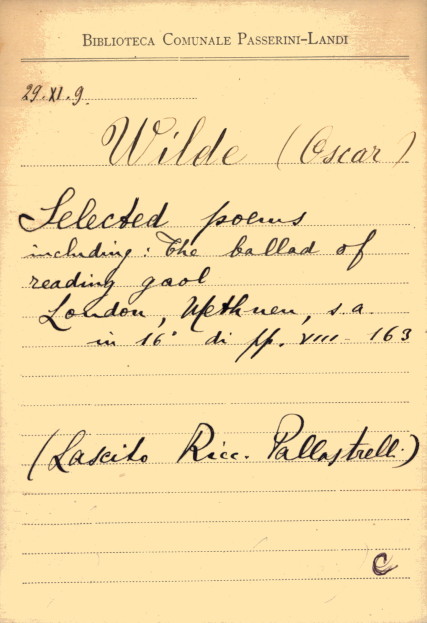 BIBLIOTECA COMUNALE PASSERINI-LANDI
29.XI.9.
Wilde (Oscar)
Selected poems
including: The ballad of
reading gaol
London, Methuen, s.a.
in 16° di pp. VIII-163
(Lascito Ricc. Pallastrelli)
C